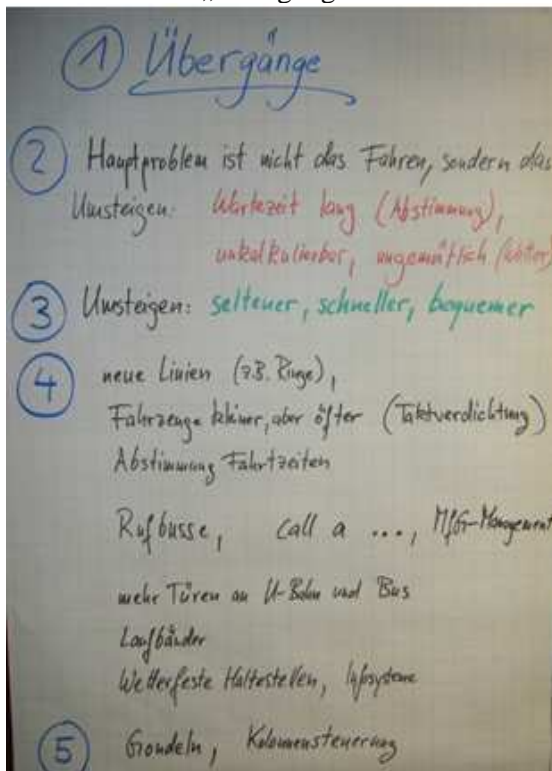 ① Übergänge
② Hauptproblem ist nicht das Fahren, sondern das
Umsteigen: Wartezeit lang (Abstimmung),
unkalkulierbar, ungemütlich (Wetter)
③ Umsteigen: seltener, schneller, bequemer
④ neue Linien (z.B. Ringe),
Fahrzeuge kleiner, aber öfter (Taktverdichtung)
Abstimmung Fahrtzeiten
Rufbusse, call a ..., MfG-Management
mehr Türen an U-Bahn und Bus
Laufbänder
Wetterfeste Haltestellen, Infosysteme
⑤ Gondeln, Kolonnensteuerung